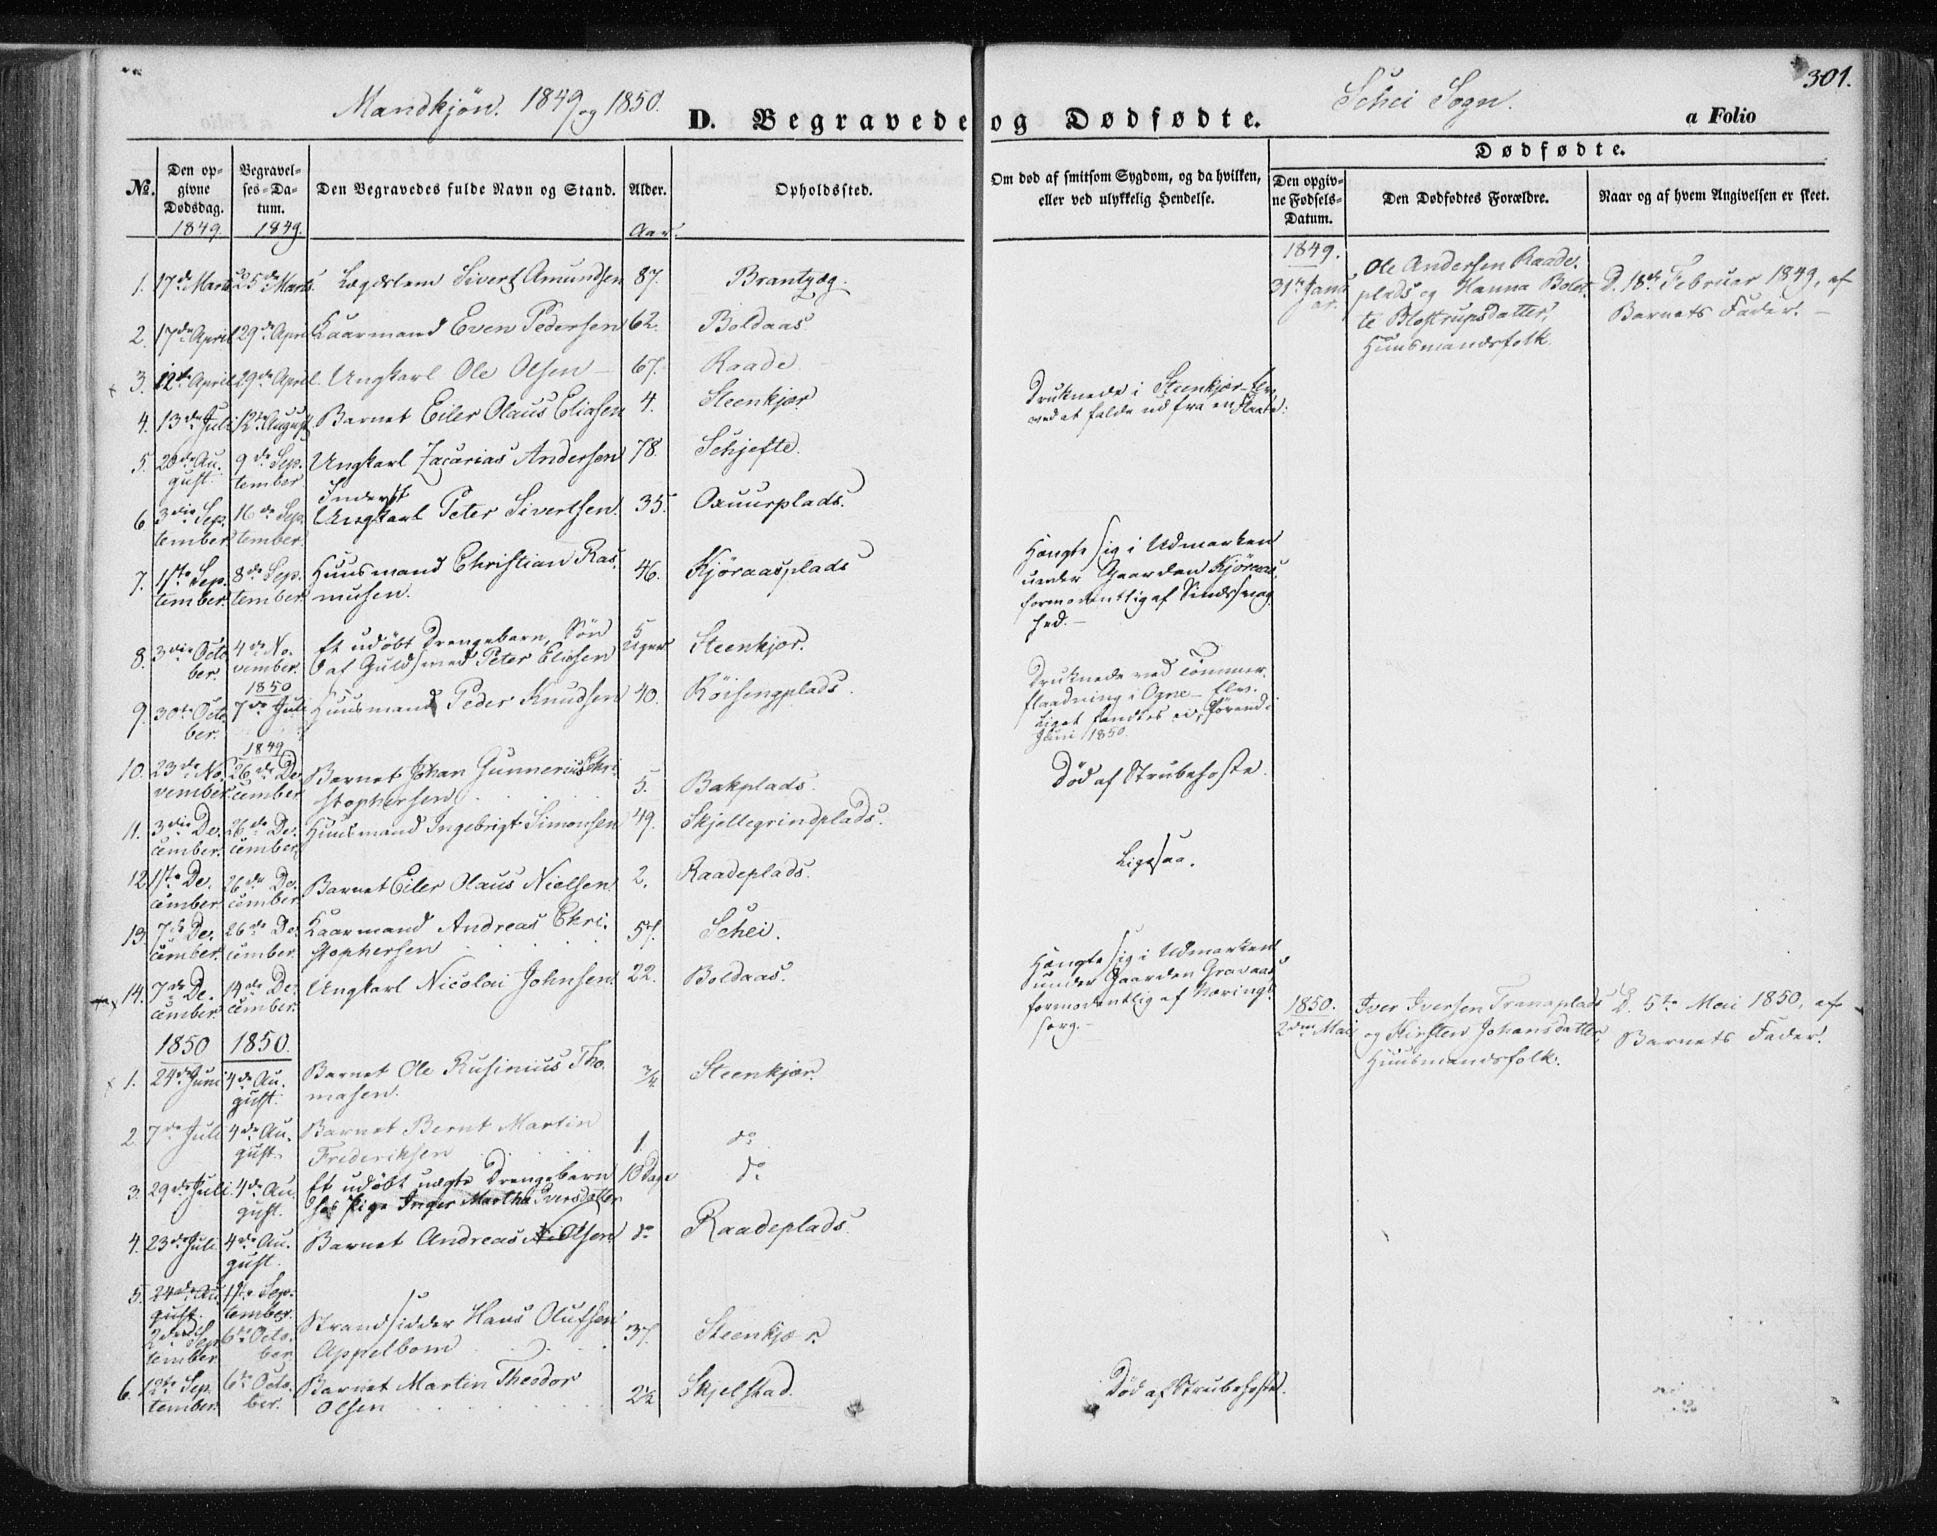 Mandkjön. 1849 og 1850.
D. Begravede og Dødfødte.
Schei Sogn.
a Folio
301.
No.
Den opgivne Dødsdag.
Begravelses-Datum.
Den Begravedes fulde Navn og Stand.
Alder.
Opholdssted.
Om død af smitsom Sygdom, og da hvilken, eller ved ulykkelig Hendelse.
Dødfødte.
Den opgivne Fødsels-Datum.
Den Dødfødtes Forældre.
Naar og af hvem Angivelsen er skeet.
1849. 1849. Aar.
1. 17de Marts 25de Marts Lægdslem Sivert Amundsen 87.
2. 17de April 29de April Kaarmand Even Pedersen 62. Boldaas.
3. 12te April 29de April Ungkarl Ole Olsen 67. Raade
4. 13de Juli 12te August Barnet Eiler Olaus Eliasen 4. Steenkjær
Druknede i Steenkjær-Elv
ved at falde ud fra en Flaade.
5. 20de August 9de September Ungkarl Zacarias Andersen 78. Schjefte.
Inderst
6. 3die September 16de September Ungkarl Peter Sivertsen 35. Oxuurplads.
7. 1ste September 8de September Huusmand Christian Rasmusen. 46. Kjöraasplads
Hængte sig i Udmarken
under Gaarden Kjöraas,
formodentlig af Sindssvaghed.
8. 3die October 4de November. Et udöbt Drengebarn, Sön
af Guldsmed Peter Eliasen 5 Uger Steenkjær.
1850
9. 30te October. 7de Juli Huusmand Peder Knudsen 40. Röisengplads.
Druknede ved Tömmer-
flaadning i Ogne-Elv.
Liget fandtes ei, förend i
Juni 1850.
1849
10. 23de November 26de December Barnet Johan Gunnerius Christophersen 5. Bakplads.
Död af Strubehoste.
11. 3die December. 26de December Huusmand Ingebrigt Simonsen 49. Skjellegrindplads.
12. 1ste December 26de December Barnet Eiler Olaus Nielsen 2. Raadeplads.
Ligesaa.
13. 7de December. 26de December. Kaarmand Andreas Christophersen 57. Schei.
14. 7de December 14de December. Ungkarl Nicolai Johnsen 22. Boldaas.
Hængte sig i Udmarken
under Gaarden Gravaas
formodentlig af Næringssorg.
1850 1850.
1. 24de Juni 4de August. Barnet Ole Rusinius Thomasen. 3/4 Steenkjær.
2. 7de Juli 4de August. Barnet Bernt Martin
Frederiksen 1. do
3. 29de Juli 4de August. Et udöbt uægte Drengebarn 10 Dage do
Pige Inger Martha Iversdatter
4. 23de Juli 4de August. Barnet Andreas Olsen do Raadeplads.
5. 24de August. 1ste September.
2den September 6te October Strandsidder Hans Olufsen
Appelbom 37. Steenkjær
6. 12te September. 6te October. Barnet Martin Theodor
Olsen 2 1/2 Skjelstad.
Död af Strubehoste.
1849.
31te Januar. Ole Andersen Raade-
plads og Hanna
Blostrupsdatter,
Huusmandsfolk.
D. 18de Februar 1849, af
Barnets Fader.
1850.
2den Mai Iver Iversen Tranaplads
og Kirsten Johansdatter,
Huusmandsfolk.
D. 5te Mai 1850, af
Barnets Fader.